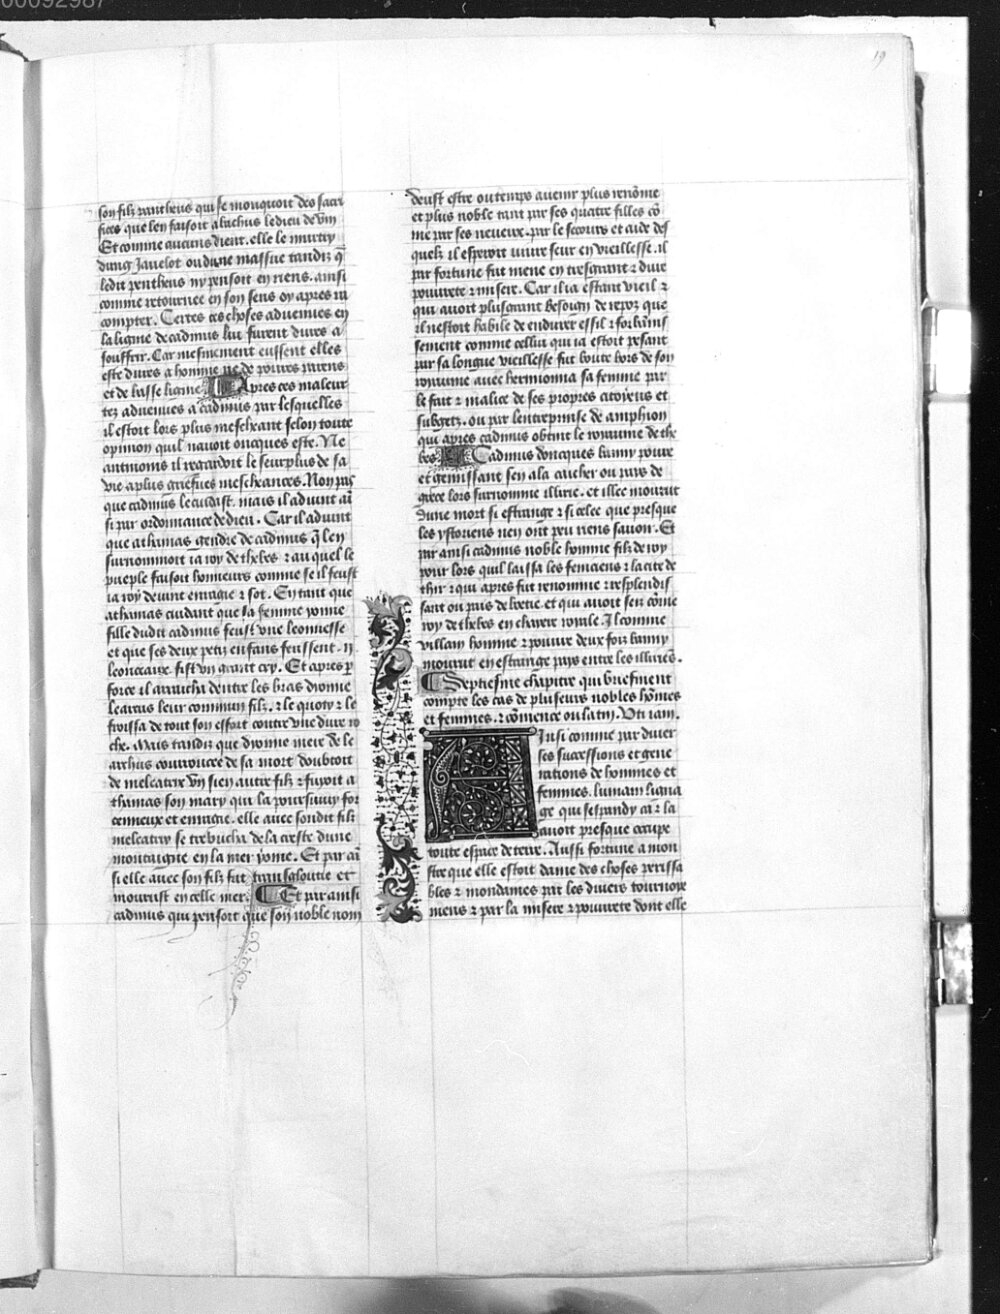 00092987
19
son filz pantheus qui se mocquoit des sacri
fices que len faisoit a bachus le dieu de vin
Et comme aucuns dient. elle le murtry
dung Javelot ou dune massue tandiz q̄
ledit pentheus ny pensoit en riens. ainsi
comme retournee en son sens oy apres ra
compter. Certes ces choses advenues en
la ligne de cadmus lui furent dures a
souffrir. Car mesmement eussent elles
este dures a homme ne de povres parens
et de basse ligne Apres ces maleur
tez advenues a cadmus par lesquelles
il estoit lors plus meschant selon toute
opinion quil navoit oncques este. Ne
antmoins il regardoit le seurplus de sa
vie a plus griefves meschances. Non pas
que cadmus le cuidast. mais il advint ai
si par ordonnance de dieu. Car il advint
que athamas gendre de cadmus q̄ len
surnommoit ia roy de thebes ⁊ au quel le
pueple faisoit honneurs comme se il feust
ia roy devint enragie ⁊ sot. En tant que
athamas cuidant que sa femme yonne
fille dudit cadmus feust une leonnesse
et que ses deux petiz enfans feussent .ij.
leonceaux. fist un grant cry. Et apres p
force il arracha dentre les bras dyonne
learcus leur commun filz. ⁊ le quoty ⁊ le
froissa de tout son effort contre une dure ro
che. Mais tandiz que dyonne mere de le
archus courroucee de sa mort doubtoit
de melcatere un sien autre filz ⁊ fuyoit a
thamas son mary qui la poursuivy for
cenneux et enragie. elle avec son dit filz
melcatry se trebucha de la creste dune
montaigne en la mer yome. Et par ai
si elle avec son filz fut transgloutie et
mourust en celle mer. Et par ainsi
cadmus qui pensoit que son noble nom
deust estre ou temps avenir plus renōme
et plus noble tant par ses quatre filles cō
me par ses neveux. par le secours et aide des
quelz il esperoit vivre seur en vieillesse. il
par fortune fut mene en tresgrant ⁊ dure
povrete ⁊ misere. Car il ia estant vieil ⁊
qui avoit plus grant besoing de repoz que
il nestoit habile de endurer essil ⁊ forbanis
sement comme cellui qui ia estoit pesant
par sa longue vieillesse fut boute hors de son
royaume avec hermionna sa femme par
le fait ⁊ malice de ses propres citoyens et
subgetz. ou par lentreprinse de amphion
qui apres cadmus obtint le royaume de the
bes Cadmus doncques banny povre
et gemissant sen ala cacher ou pays de
grece lors surnomme illirie. et illec mourut
dune mort si estrange ⁊ si celee que presque
les ystoriens nen ont peu riens savoir. Et
par ainsi cadmus noble homme filz de roy
pour lors quil laissa les feniciens ⁊ la cite de
thir ⁊ qui apres fut renomme ⁊ resplendis
sant ou pais de boetie. et qui avoit seu cōme
roy de thebes en chaiere royale. Il comme
villain homme ⁊ povre deux foiz banny
mourut en estrange pays entre les illiriens.
Septiesme chapitre qui briefment
compte les cas de plusieurs nobles hōmes
et femmes. ⁊ cōmence ou latin. Uti iam.
Ainsi comme par diver
ses successions et gene
rations de hommes et
femmes. lumain ligna
ge qui sespandy ca ⁊ la
avoit presque occupe
toute espace de terre. Aussi fortune a mon
stre que elle estoit dame des choses perissa
bles ⁊ mondaines par les divers tournoye
mens ⁊ par la misere ⁊ povrete dont elle